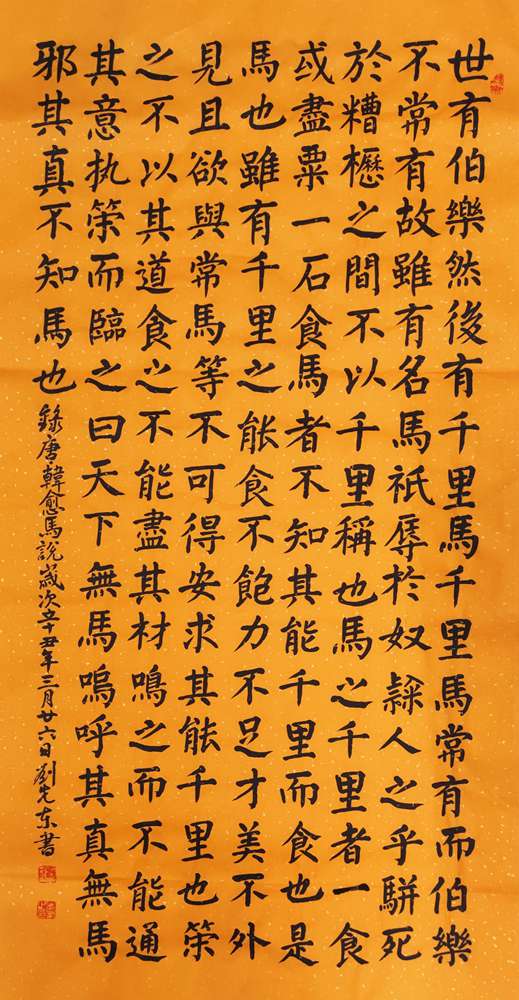 世有伯樂然後有千里馬千里馬常有而伯樂
不常有故雖有名馬祇辱於奴隸人之乎駢死
於糟櫪之間不以千里稱也馬之千里者一食
或盡粟一石食馬者不知其能千里而食也是
馬也雖有千里之能食不飽力不足才美不外
見且欲與常馬等不可得安求其能千里也策
之不以其道食之不能盡其材鳴之而不能通
其意执策而臨之曰天下無馬嗚呼其真無馬
邪其真不知馬也
錄唐韓愈馬說歲次辛丑年三月廿六日劉先东書